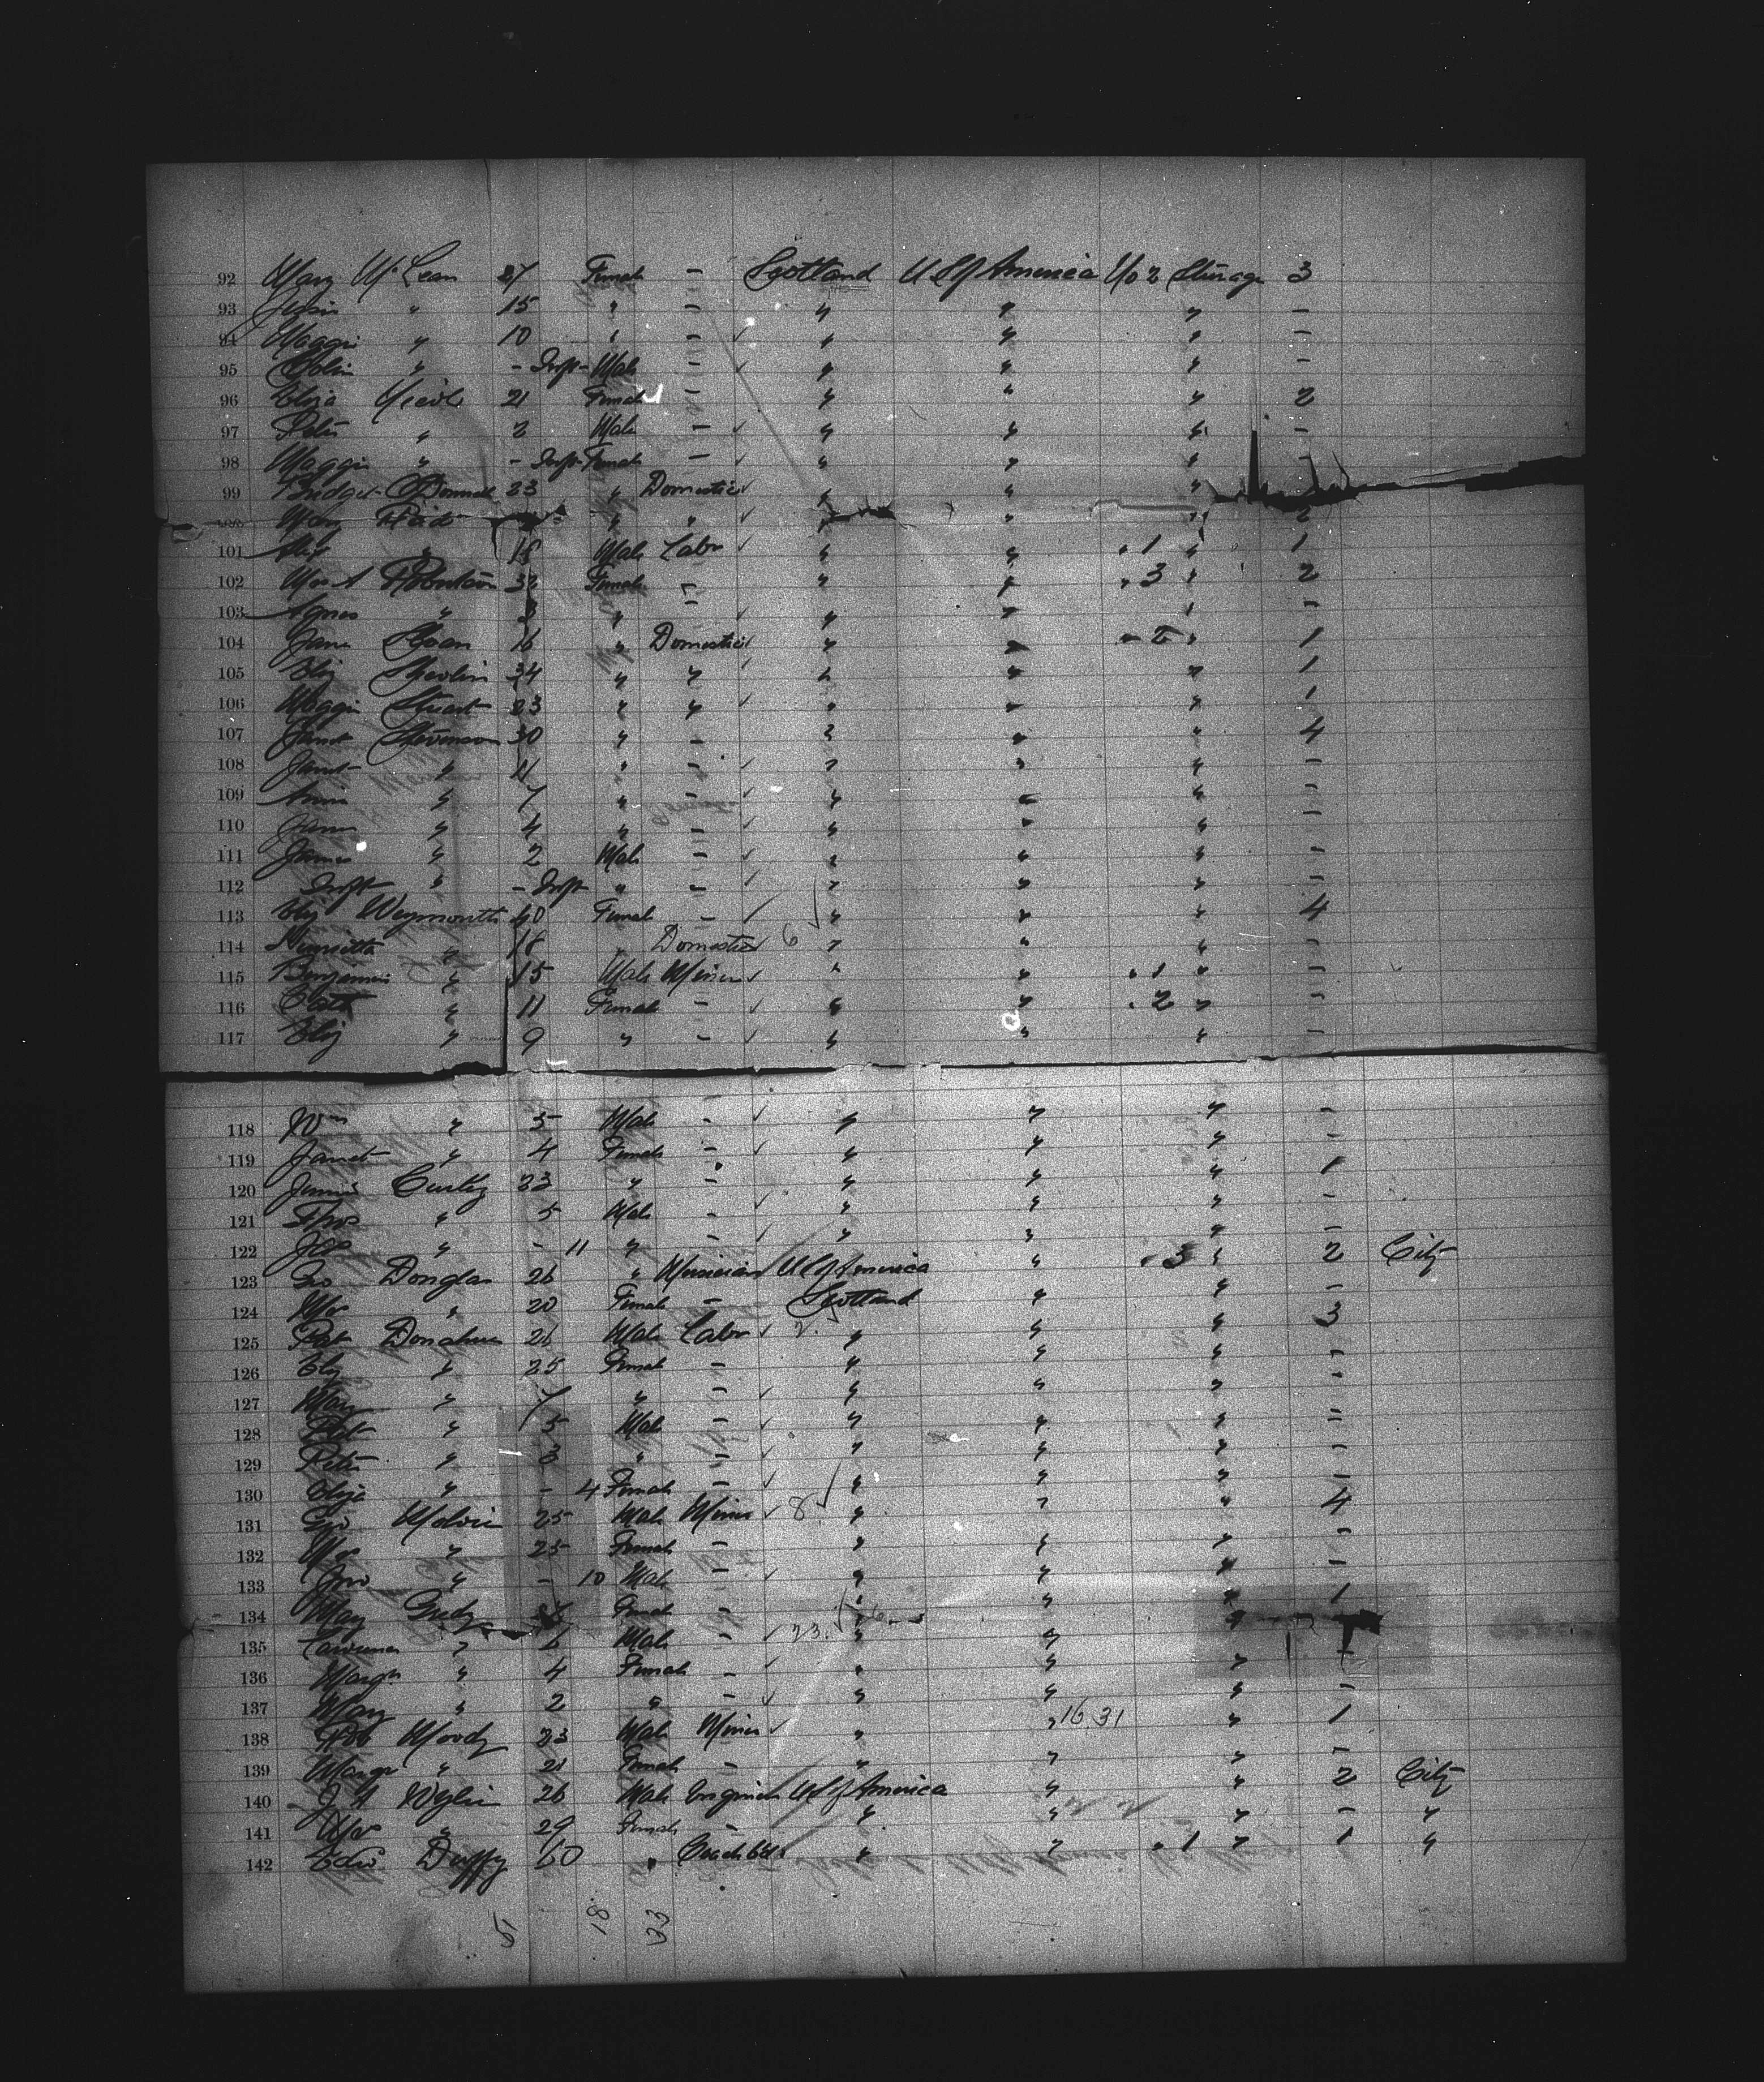 92 Mary McLean 27 Female - Scotland U S of America No 2 Steerage 3
93 " 15 " - " " " -
94 Maggie " 10 " - " " " -
95 Colin " - Inft Male - " " " -
96 Eliza 21 Female - " " " 2
97 Peter " 2 Male - " " " -
98 Maggie " - Inft Female - " " "
99 Bridget O'Donnell 23 " Domestic " " "
100 Mary Reid " " " " " 2
101 Alex " 18 Male Labr " " . 1 " 1
102 Mrs A Robertson 32 Female - " " . 3 " 2
103 Agnes " 3 " - " " " -
104 Jane Sloan 16 " Domestic " " - 2 " 1
105 Eliz 34 " " " " " 1
106 Maggie Stuart 23 " " " " " 1
107 Janet Stevenson 30 " - " " " 4
108 Janet " 11 " - " " " -
109 Annie " 7 " - " " " -
110 Jane " 4 " - " " " -
111 James " 2 Male - " " " -
112 Inft " - Inft " - " " " -
113 Eliz Weymouth 40 Female - " " " 4
114 Henrietta " 18 Domestic 6 " " " -
115 Benjamin " 15 Male Miner " " . 1 " -
116 " 11 Female - " " . 2 " -
117 Eliz " 9 " - " " " -
118 Wm " 5 Male - " " " -
119 Janet " 4 Female - " " " -
120 Custly 23 " - " " " 1
121 Thos " 5 Male - " " " -
122 Jas " - 11 " - " " " -
123 Geo Douglas 26 " Musician U S of America " . 3 " 2 City
124 Mrs " 20 Female - Scotland " " -
125 Pat Donahue 26 Male Labr 2. " " " 3
126 Eliz " 25 Female - " " " -
127 Mary " 7 " - " " " -
128 Pat " 5 Male - " " " -
129 Peter " 3 " - " " " -
130 Eliza " - 4 Female - " " " -
131 Geo Melvin 25 Male Miner 8 " " " 4
132 Mrs " 25 Female - " " " -
133 Jno " - 10 Male - " " " -
134 Mary Female - " " " 1
135 Lawrence " 6 Male - 23. " " "
136 Margt " 4 Female - " " " -
137 Mary " 2 " - " " " -
138 Robt Moody 23 Male Miner " " 16.31 " 1
139 Margt " 21 Female - " " " -
140 J A Wylie 26 Male Engineer U S of America " " 2 City
141 Mrs " 29 Female - " " " - "
142 Edwd Duffy 60 " " " . 1 " 1 "
5 18 33